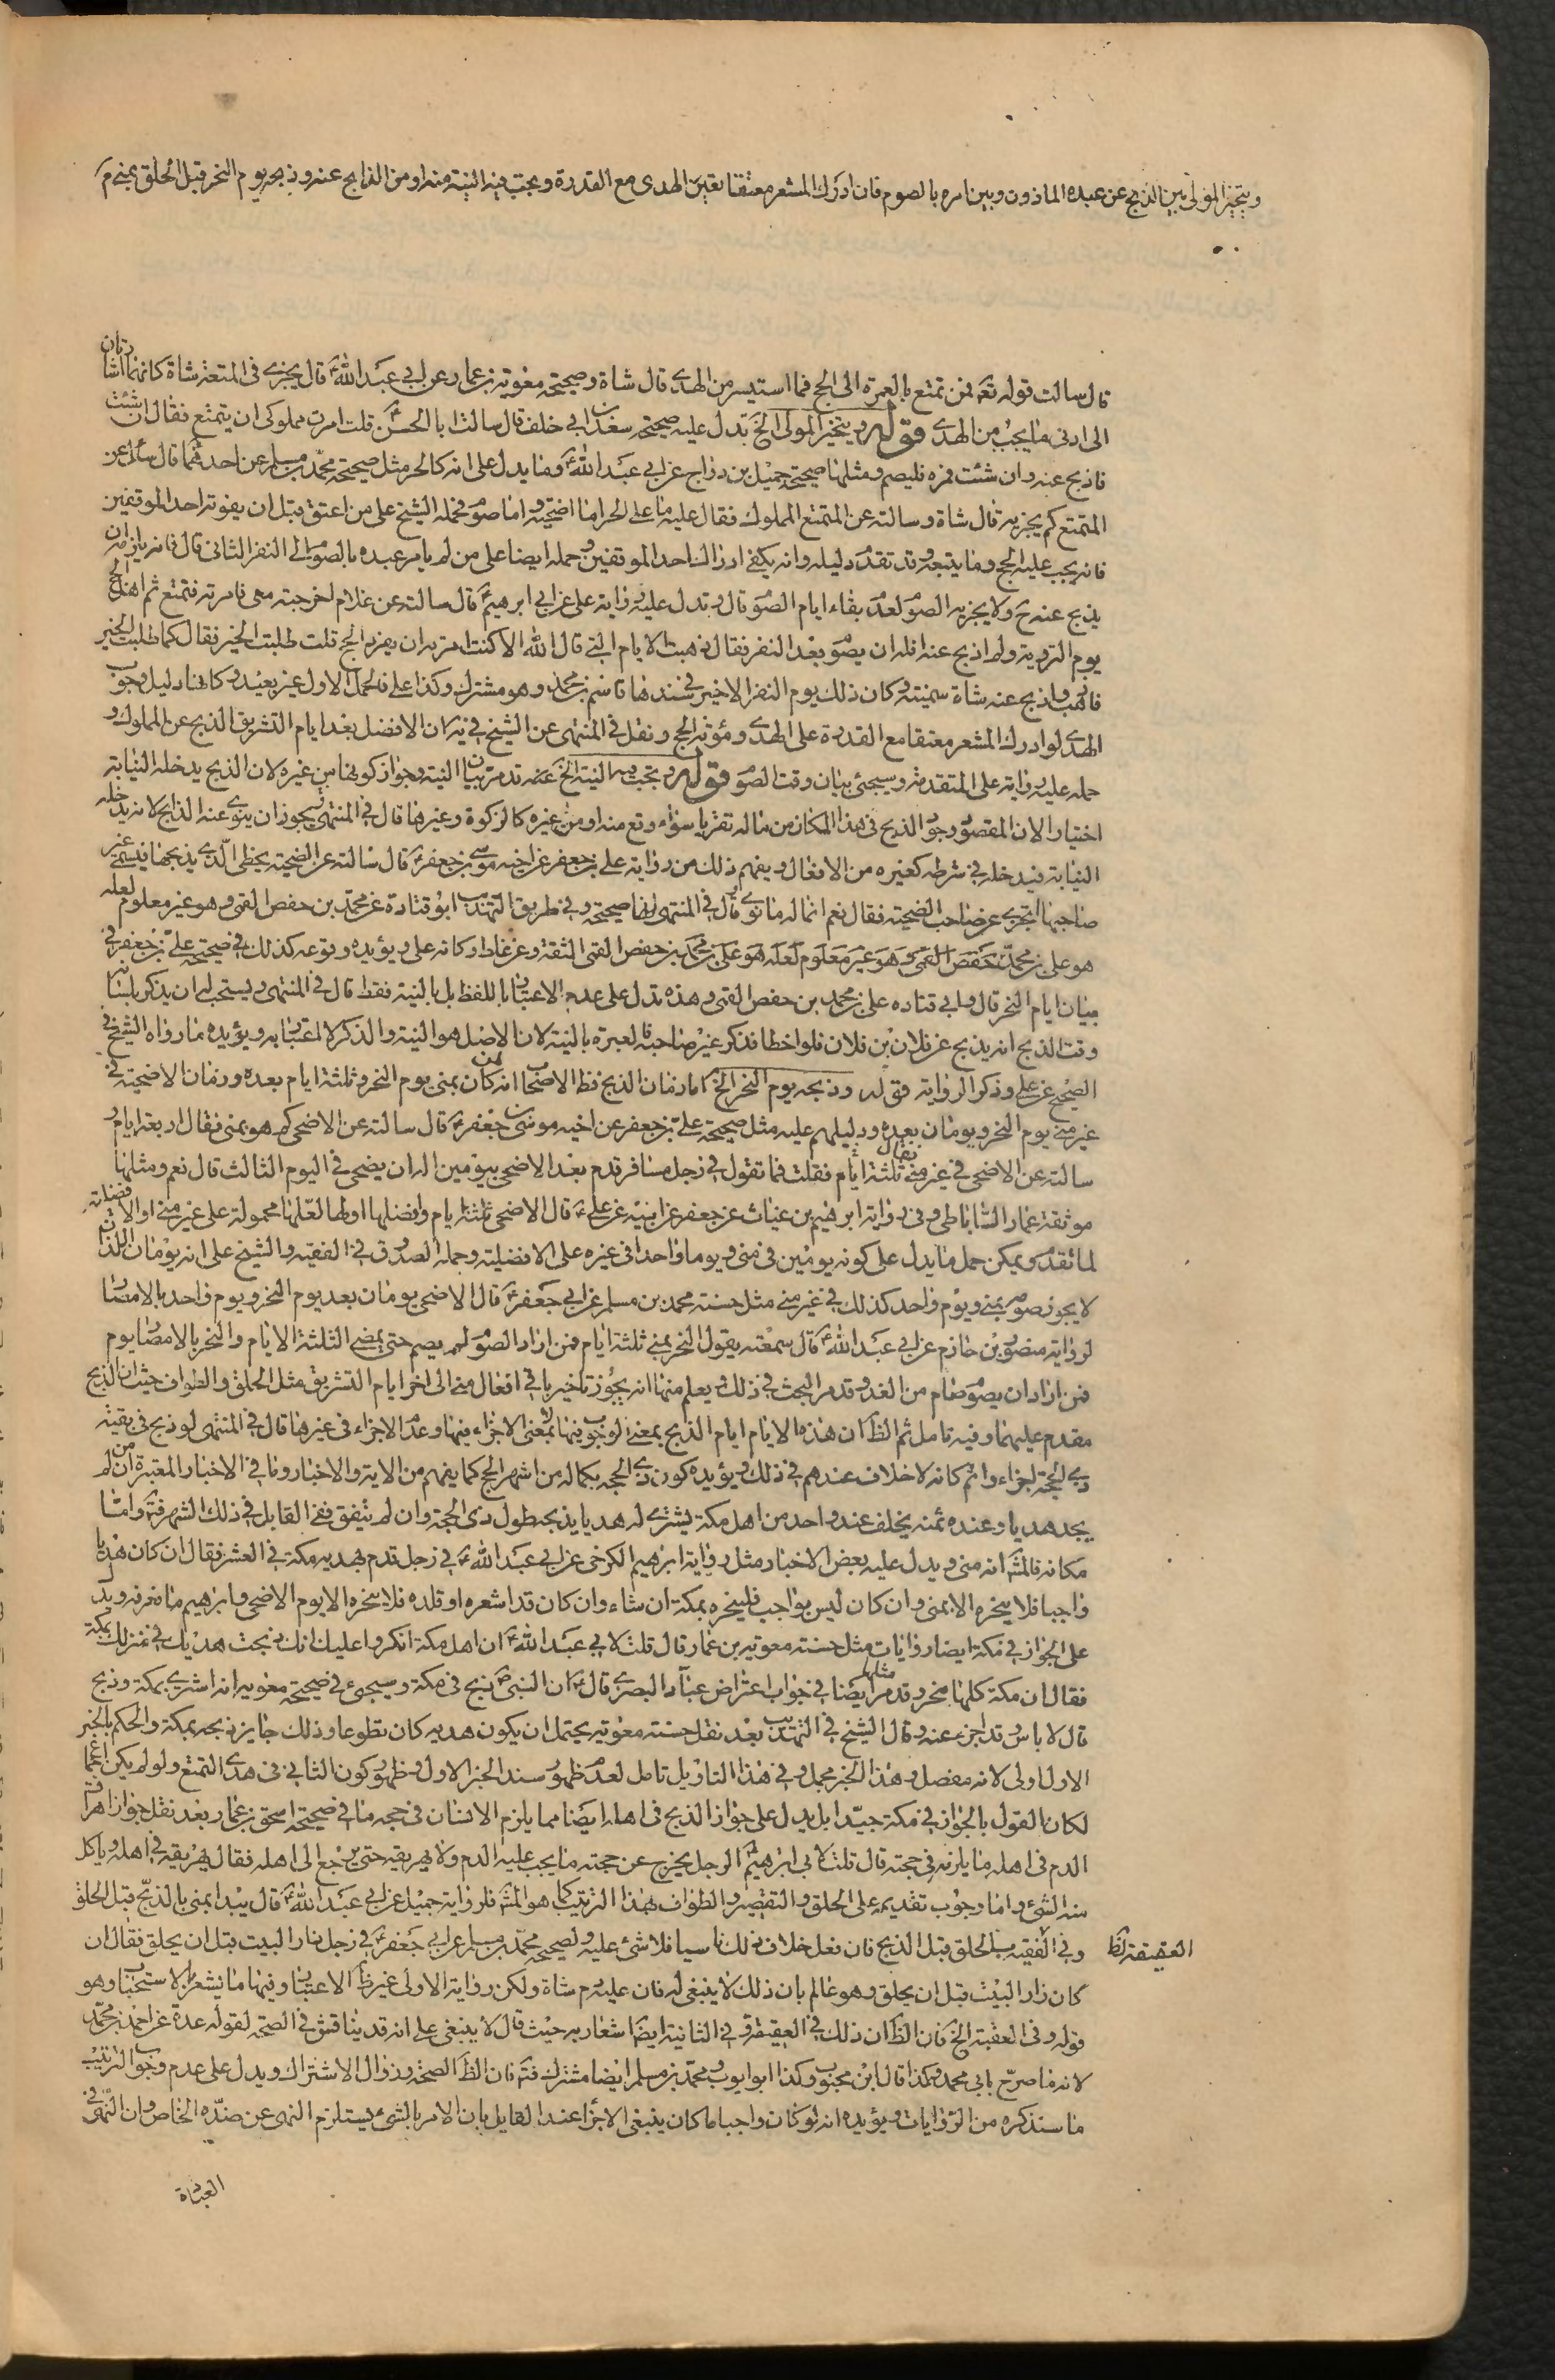 ويتخير المولى بين الذبح عن عبده الماذون وبين امره بالصوم فان ادرك المشعر معتقا تعين الهدى مع القدرة ويجب فيه النية منه او من الذابح عنه وذبحه يوم النحر قبل الحلق بمنى
قال سالت قوله تعه فمن تمتع بالعمرة الى الحج فما استيسر من الهدى قال شاة وصحيحة معوية بن عمار عن ابي عبد الله ع قال يجزى فى المتعة شاة كانهما اشارتان
الى ادنى ما يجب من الهدى قوله ويتخير المولى الخ تدل عليه صحيحة سعد بن ابى خلف قال سالت ابا الحسن ع قلت امرت مملوكى ان يتمتع فقال ان شئت
فاذبح عنه وان شئت فمره فليصم ومثلها صحيحة جميل بن دراج عن ابى عبد الله ع ومما يدل على انه كالحر مثل صحيحة محمد بن مسلم عن احدهما قال سالته عن
المتمتع كم يجزيه قال شاة وسالته عن المتمتع المملوك فقال عليه ما على الحر اما اضحية واما صوم فحمله الشيخ على من اعتق قبل ان يفوته احد الموقفين
فانه يجب عليه الحج وما يتبعه وقد تقدم دليله وانه يكفى ادراك احد الموقفين وحمله ايضا على من لم يامر عبده بالصوم الى النفر الثانى قال فانه يلزمه ان
يذبح عنه ح ولا يجزيه الصوم لعدم بقاء ايام الصوم قال وتدل عليه رواية على عن ابى ابرهيم ع قال سالته عن غلام اخرجته معى فامرته فتمتع ثم اهل بالحج
يوم التروية ولم اذبح عنه افله ان يصوم بعد النفر فقال ذهبت الايام التى قال الله الا كنت امرته ان يفرد الحج قلت طلبت الخير فقال كما طلبت الخير
فاذهب واذبح عنه شاة سمينة وكان ذلك يوم النفر الاخير فى سندها قاسم بن محمد وهو مشترك وكذا على فالحمل الاول غير بعيد وكانها دليل وجوب
الهدى لو ادرك المشعر معتقا مع القدرة على الهدى ومؤنة الحج ونقل فى المنتهى عن الشيخ فى يه ان الافضل بعد ايام التشريق الذبح عن المملوك و
حمله عليه رواية على المتقدمة وسيجئ بيان وقت الصوم قوله ويجب فيه النية الخ عنه قد مر بيان النية وجواز كونها من غيره لان الذبح يدخله النيابة
اختيارا لان المقصود وجود الذبح فى هذا المكان من ماله تقربا سواء وقع منه او من غيره كالزكوة وغيرها قال فى المنتهى ويجوز ان ينوى عنه الذابح لانه يدخله
النيابة فيدخله فى شرطه كغيره من الافعال ويفهم ذلك من رواية على بن جعفر عن اخيه موسى بن جعفر ع قال سالته عن الضحية يخطى الذى يذبحها فيسمى غير
صاحبها اتجزى عن صاحب الضحية فقال نعم انما له ما نوى قال فى المنتهى انها صحيحة وفى طريق التهذيب ابو قتادة عن محمد بن حفص القمى وهو غير معلوم لعله
هو على بن محمد بن حفص القمى وهو غير معلوم لعله هو على بن محمد بن حفص القمى الثقة وعن غلط وكانه على ويؤيده وقوعه كذلك فى صحيحة على بن جعفر فى
بيان ايام النحر قال وابى قتاده على بن محمد بن حفص القمى وهذه تدل على عدم الاعتبار باللفظ بل بالنية فقط قال فى المنتهى ويستحب له ان يذكر بلسانه
وقت الذبح انه يذبح عن فلان بن فلان فلو اخطا فذكر غير صاحبه فالعبرة بالنية لان الاصل هو النية والذكر لا اعتبار به ويؤيده ما رواه الشيخ فى
الصحيح عن على وذكر الرواية قوله وذبحه يوم النحر الخ اما زمان الذبح فظ الاصحاب انه لمن كان بمنى يوم النحر وثلثة ايام بعده وزمان الاضحية فى
غير منى يوم النحر ويومان بعده ودليلهم عليه مثل صحيحة على بن جعفر عن اخيه موسى بن جعفر ع قال سالته عن الاضحى كم هو بمنى فقال اربعة ايام و
سالته عن الاضحى فى غير منى فقال ثلثة ايام فقلت فما تقول فى رجل مسافر قدم بعد الاضحى بيومين اله ان يضحى فى اليوم الثالث قال نعم ومثلها
موثقة عمار الساباطى وفى رواية ابرهيم بن غياث عن جعفر عن ابيه عن على ع قال الاضحى ثلثة ايام وافضلها اولها لعلها محمولة على غير منى او الافضلية
لما تقدم ويمكن حمل ما يدل على كونه يومين فى منى ويوما واحدا فى غيره على الافضلية وحمله الصدوق فى الفقيه والشيخ على انه يومان اللذان
لا يجوز صومه بمنى ويوم واحد كذلك فى غير منى مثل حسنة محمد بن مسلم عن ابى جعفر ع قال الاضحى يومان بعد يوم النحر ويوم واحد بالامصار
لرواية منصور بن حازم عن ابى عبد الله ع قال سمعته يقول النحر بمنى ثلثة ايام فمن اراد الصوم لم يصم حتى يمضى الثلثة الايام والنحر بالامصار يوم
فمن اراد ان يصوم صام من الغد وقد مر البحث فى ذلك ويعلم منها انه يجوز تاخير باقى افعال منى الى اخر ايام التشريق مثل الحلق والطواف حيث ان الذبح
مقدم عليهما وفيه تامل ثم الظ ان هذه الايام ايام الذبح بمعنى الوجوب فيها لا بمعنى الاجزاء فيها وعدم الاجزاء فى غيرها قال فى المنتهى لو ذبح فى بقية
ذى الحجة اجزاء واثم كانه لا خلاف عندهم فى ذلك ويؤيده كون ذى الحجه بكماله من اشهر الحج كما يفهم من الاية والاخبار وما فى الاخبار المعتبرة من ان لم
يجد هديا وعنده ثمنه يخلف عند واحد من اهل مكة يشترى له هديا يذبحه طول ذى الحجة وان لم يتفق ففى القابل فى ذلك الشهر فتم واما
مكانه فالمشه انه منى ويدل عليه بعض الاخبار مثل رواية ابرهيم الكرخى عن ابى عبد الله ع فى رجل قدم بهديه مكة فى العشر فقال ان كان هديا
واجبا فلا ينحره الا بمنى وان كان ليس بواجب فلينحره بمكة ان شاء وان كان قد اشعره او قلده فلا ينحره الا يوم الاضحى وابرهيم ما نعرفه ويدل
على الجواز فى مكة ايضا روايات مثل حسنة معوية بن عمار قال قلت لابى عبد الله ع ان اهل مكة انكروا عليك انك ذبحت هديك فى منزلك بمكة
فقال ان مكة كلها منحر وقد مر مثلها ايضا فى جواب اعتراض عباد البصرى قال ع ان النبى ص ذبح فى مكة وسيجىء فى صحيحة معوية انه اشترى بمكة وذبح
قال لا باس وقد اجزء عنه وقال الشيخ فى التهذيب بعد نقل حسنة معوية يحتمل ان يكون هديه كان تطوعا وذلك جايز ذبحه بمكة والحكم بالخبر
الاول اولى لانه مفصل وهذا الخبر مجمل وفى هذا التاويل تامل لعدم ظهور سند الخبر الاول وظهور كون الثانى فى هدى التمتع ولو لم يكن اجماعا
لكان القول بالجواز فى مكة جيدا بل يدل على جواز الذبح فى اهله ايضا مما يلزم الانسان فى حجه ما فى صحيحة اسحق بن عمار بعد نقل جواز اهراق
الدم فى اهله ما يلزمه فى حجته قال قلت لابى ابرهيم ع الرجل يخرج عن حجته ما يجب عليه الدم ولا يهريقه حتى يرجع الى اهله فقال يهريقه فى اهله وياكل
منه الشئ واما وجوب تقديمه على الحلق والتقصير والطواف بهذا الترتيب كما هو المشه فلرواية جميل عن ابى عبد الله ع قال يبدا بمنى بالذبح قبل الحلق
وفى العقيقة بالحلق قبل الذبح فان فعل خلاف ذلك ناسيا فلا شئ عليه ولصحيحة محمد بن مسلم عن ابى جعفر ع فى رجل زار البيت قبل ان يحلق فقال ان
العقيقة لظ
كان زار البيت قبل ان يحلق وهو عالم بان ذلك لا ينبغى له فان عليه دم شاة ولكن رواية الاولى غير ظ الاعتبار وفيها ما يشعر بالاستحباب وهو
قوله وفى العقيقة الخ فان الظ ان ذلك فى العقيقة وفى الثانية ايضا اشعار به حيث قال لا ينبغى على انه قد يناقش فى الصحة لقوله عدة عن احمد بن محمد
لانه ما صرح بابى محمد وهكذا قال ابن محبوب وكذا ابو ايوب ومحمد بن مسلم ايضا مشترك فتم فان الظ الصحة وزوال الاشتراك ويدل على عدم وجوب الترتيب
ما سنذكره من الروايات ويؤيده انه لو كان واجبا ما كان ينبغى الاجزاء عند القايل بان الامر بالشئ يستلزم النهى عن ضده الخاص وان النهى فى
العبادة